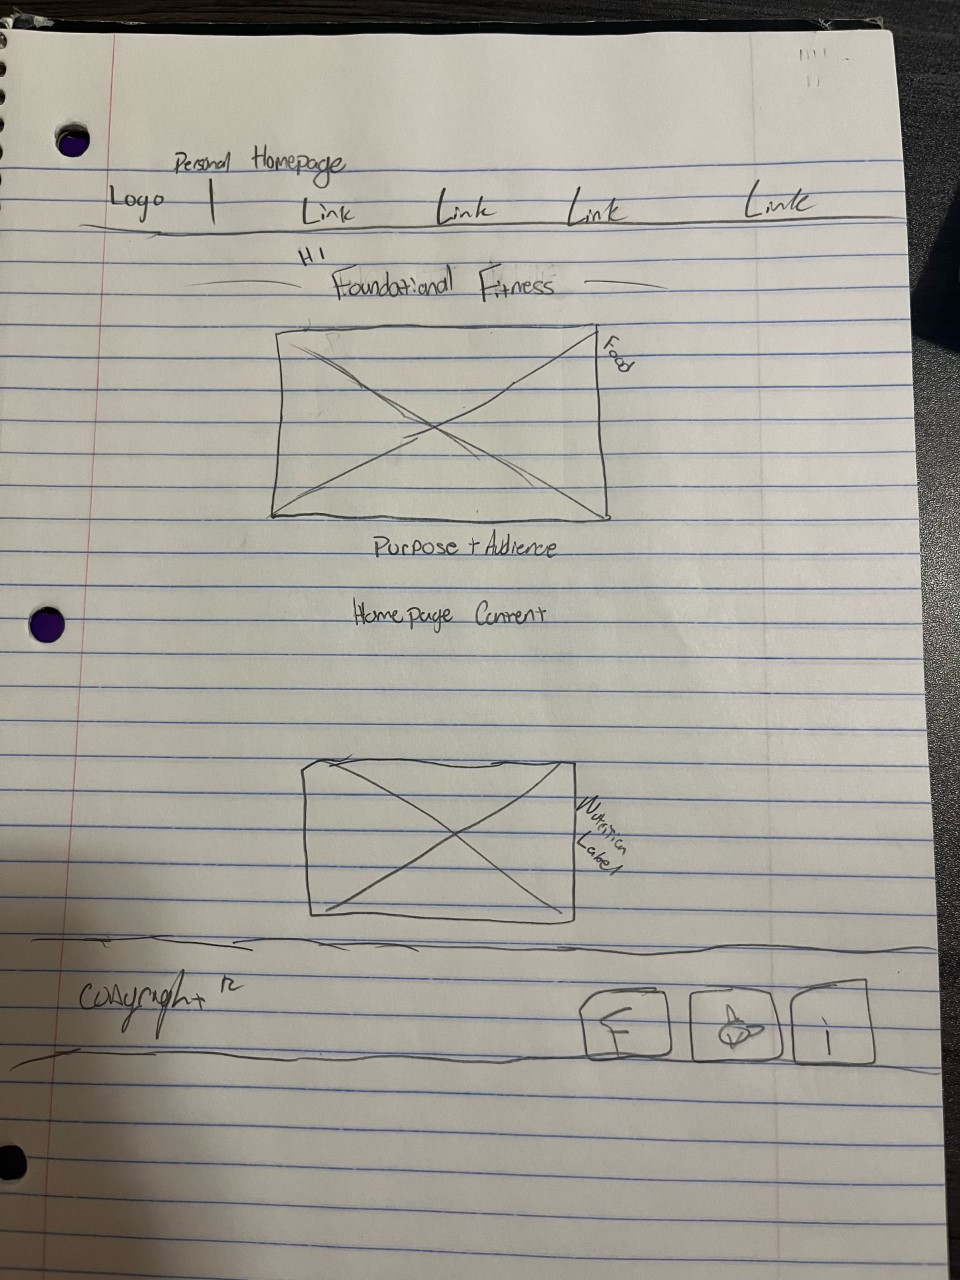 Personal Homepage
Logo | Link Link Link Link
H1
Foundational Fitness
Food
Purpose + Audience
Homepage Content
Nutrition
Label
Copyright
F
i